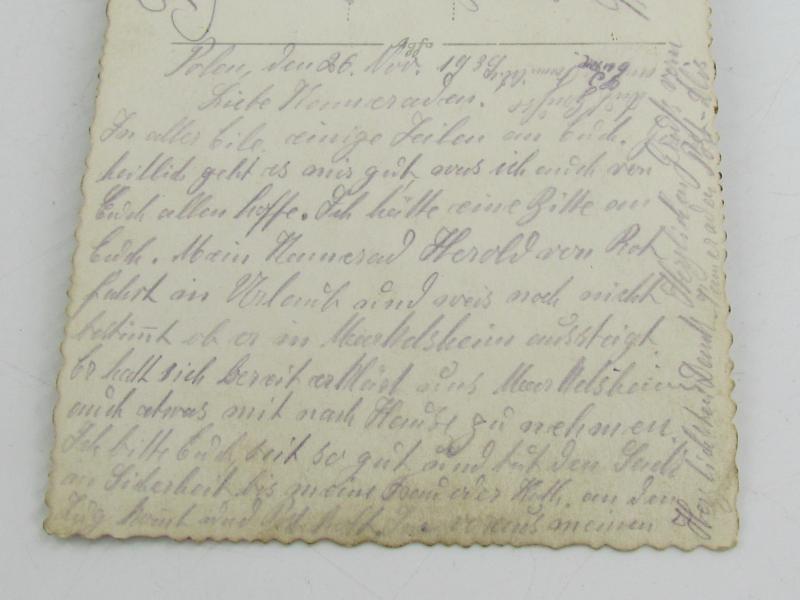 Agfa
Polen, den 26. Nov. 1939
Liebe Kammeraden.
In aller Eile einige Zeilen an Euch.
heitlich geht es mir gut, was ich auch von
Euch allen hoffe. Ich hätte eine Bitte an
Euch. Mein Kammerad Herold von Rot
fährt in Urlaub und weis noch nicht
bestimmt ob er in Markelsheim aussteigt
Er hatt sich bereit erklärt uns Markelsheimer
auch etwas mit nach Hause zu nehmen.
Ich bitte Euch seit so gut und tut den Sack
in Sicherheit bis meine Frau oder Kath. an den
Zug kommt und holt. Im voraus meinen
Herzlichsten Dank
Herzlichen Gruß vom
Kammeraden